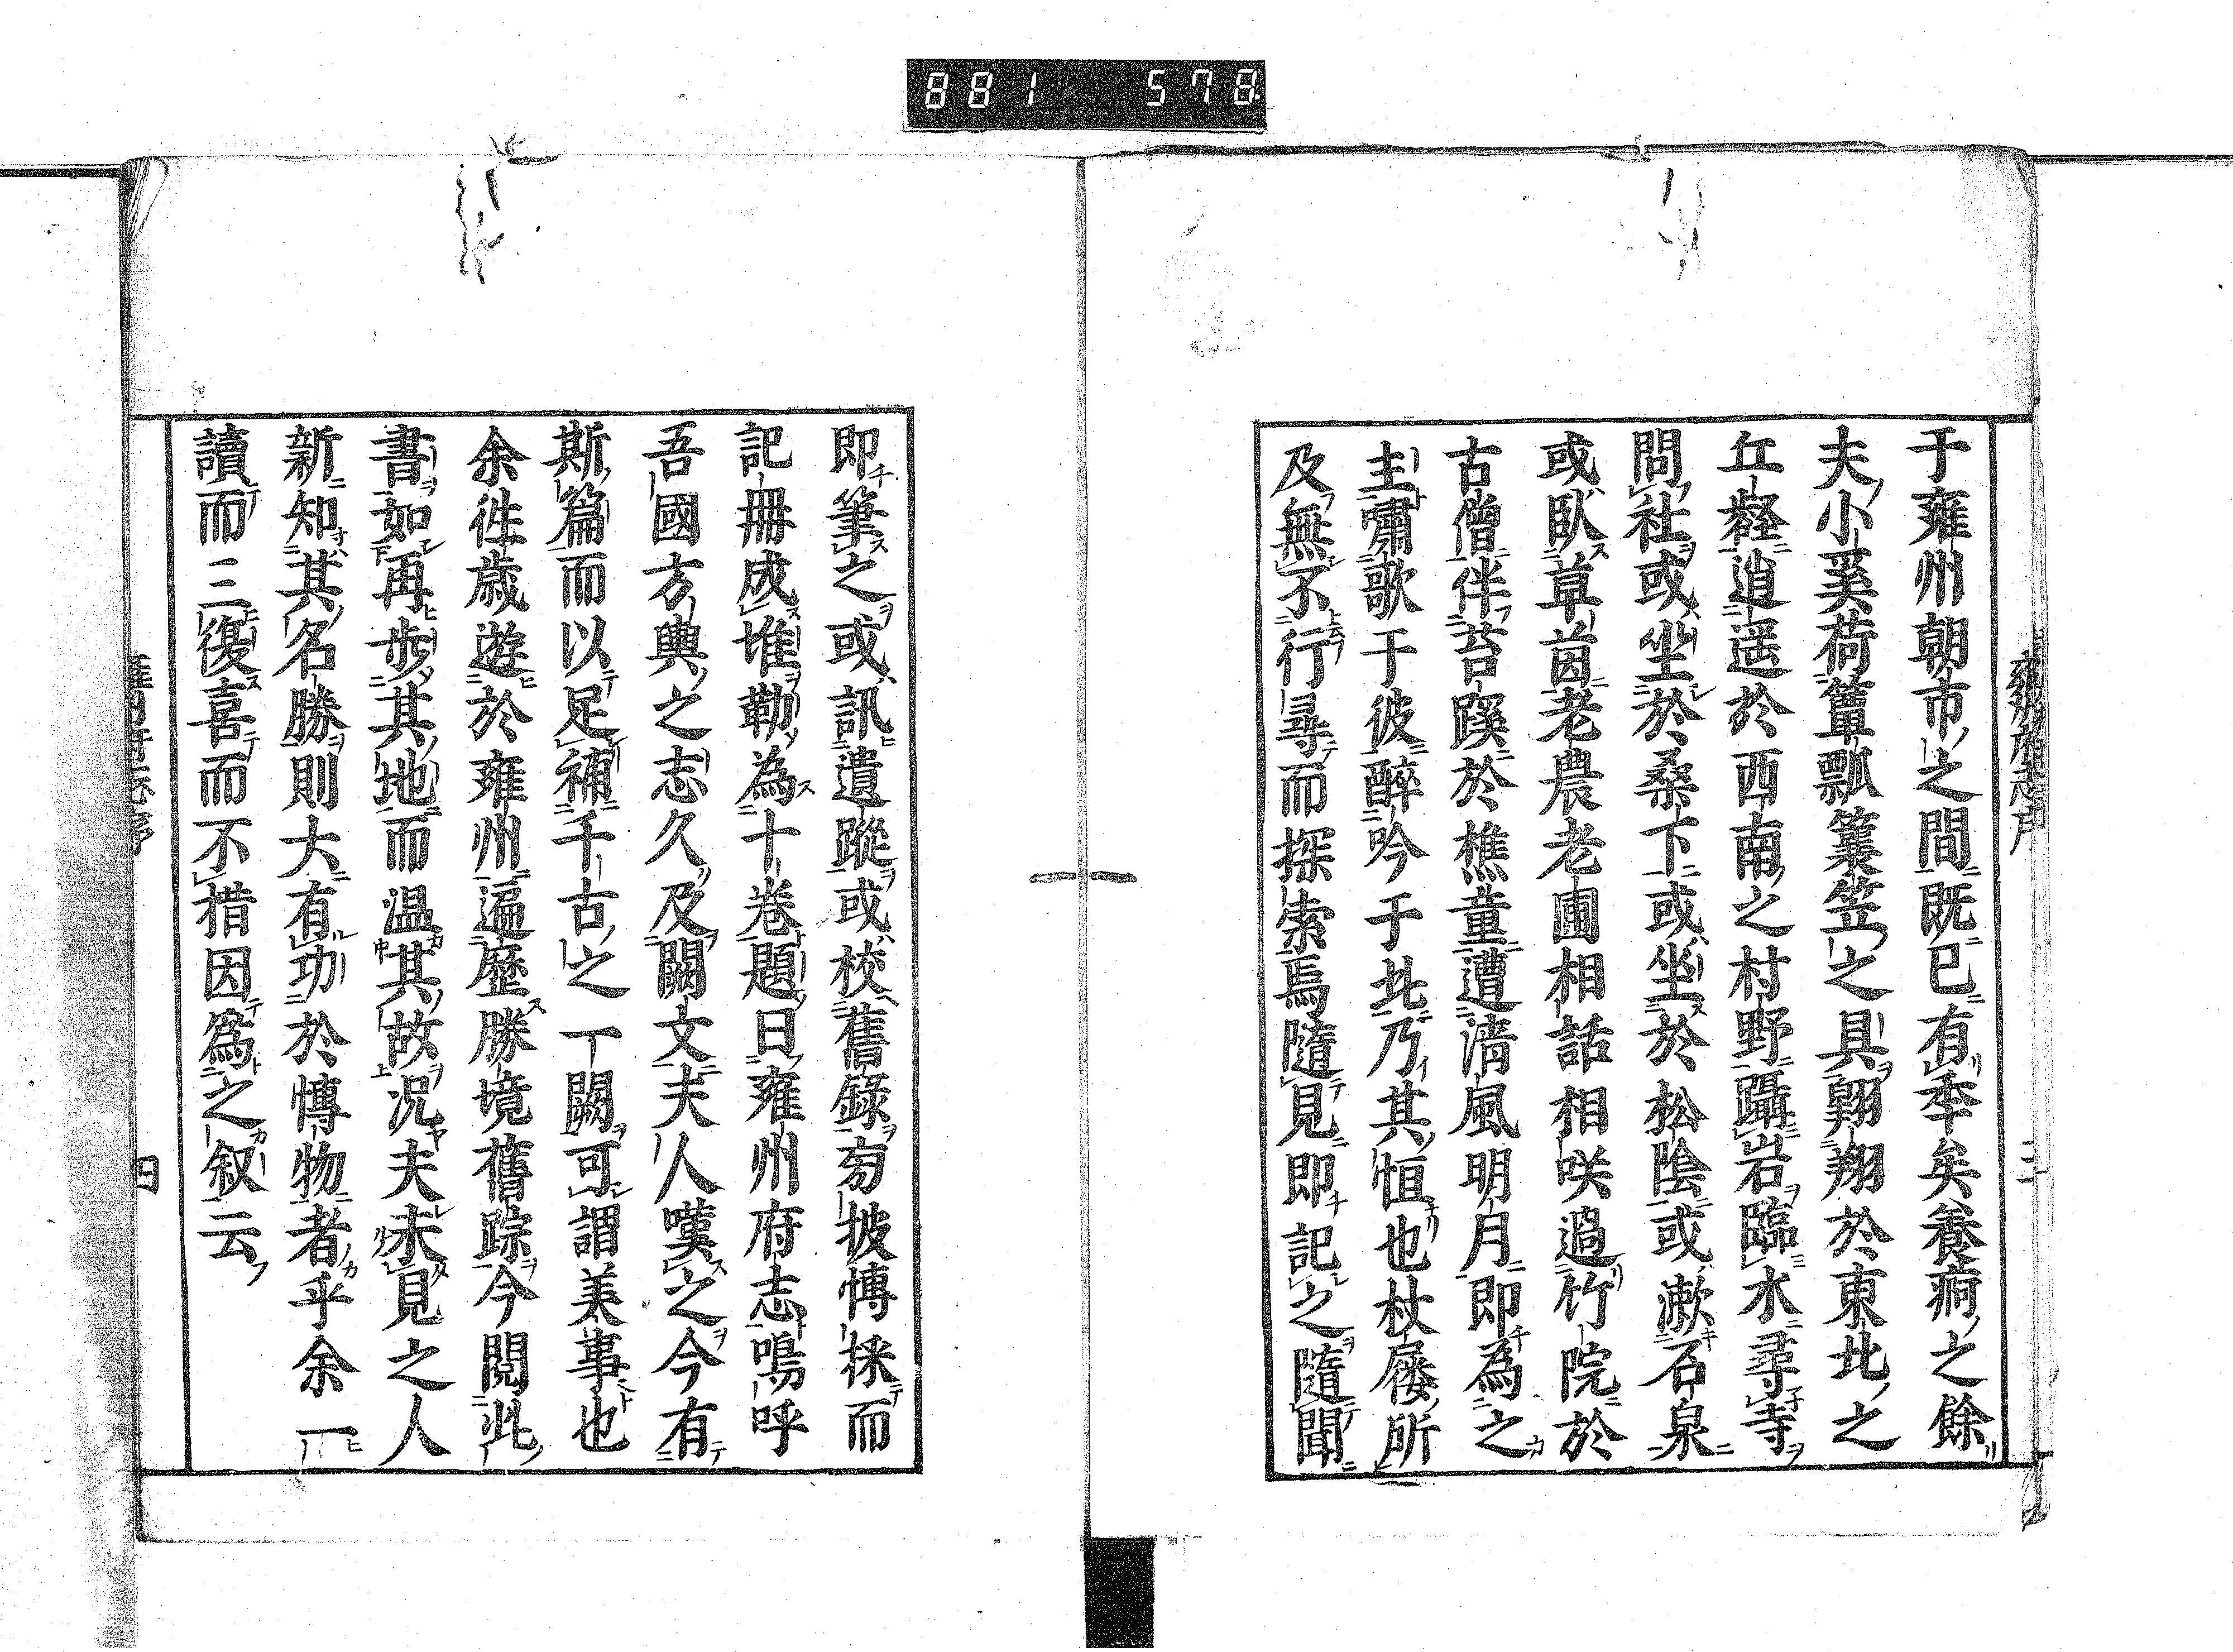 881 578
于雍州朝市之間既已有季矣養痾之餘
夫小奚荷簞瓢簑笠之具翺翔於東北之
丘壑逍遥於西南之村野躡岩臨水尋寺
問社或坐於桑下或坐於松陰或漱石泉
或臥草茵老農老圃相話相咲過竹院於
古僧伴苔蹊於樵童遭清風明月即為之
主嘯歌于彼醉吟于此乃其恒也杖屨所
及無不行尋而探索焉隨見即記之隨聞
即筆之或訊遺蹤或校舊錄旁披博採而
記冊成堆勒為十卷題曰雍州府志嗚呼
吾國方輿之志久及闕文夫人嘆之今有
斯篇而以足補千古之一闕可謂美事也
余徃歳遊於雍州遍歴勝境舊踪今閲此
書如再步其地而温其故况夫未見之人
新知其名勝則大有功於博物者乎余一
讀而三復喜而不措因爲之叙云
四